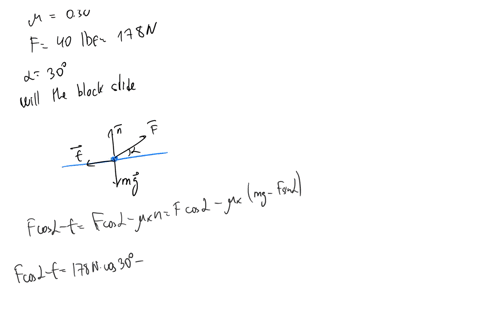 μ = 0.30
F = 40 lbf = 178N
α = 30°
will the block slide
n⃗
F⃗
f⃗
α
mg⃗
Fcosα-f = Fcosα - μₖn = Fcosα - μₖ (mg - Fsinα)
Fcosα-f = 178N·cos30° -